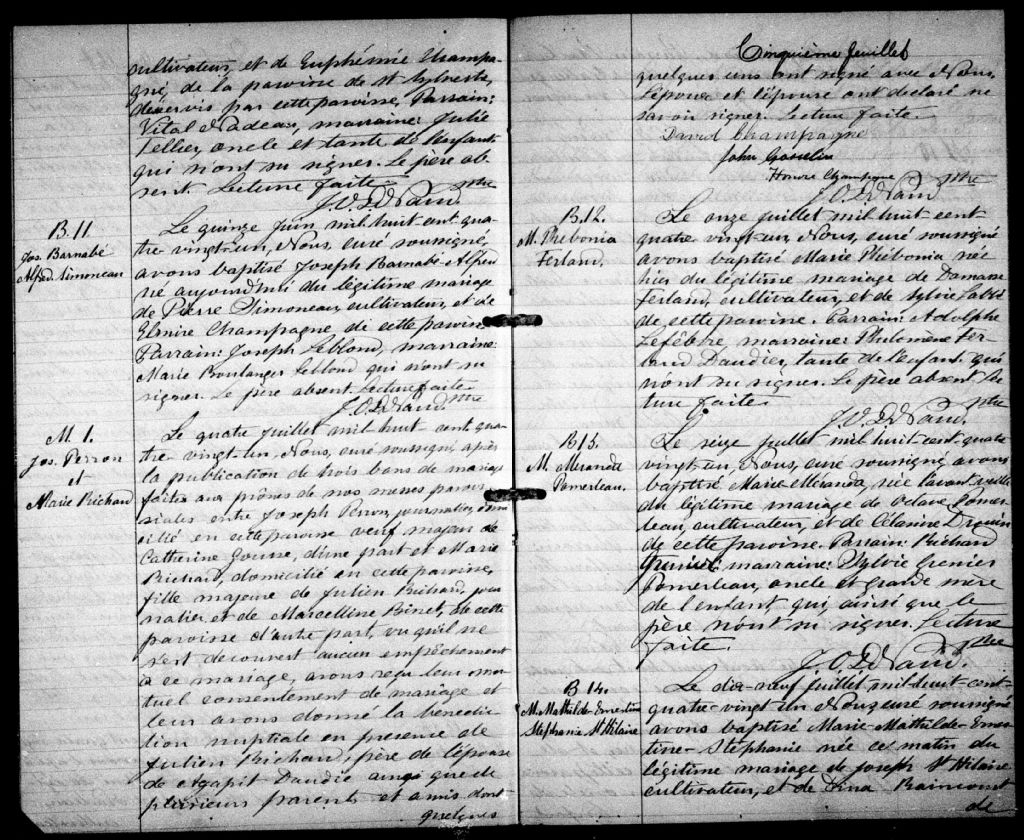 cultivateur, et de Euphémie Champa-
gne, de la paroisse de St Sylvestre,
desservis par cette paroisse, Parrain:
Vital Nadeau, marraine: Julie
Tellier, oncle et tante de l'enfant
qui n'ont su signer. Le père ab-
sent. Lecture faite.
ptre
B. 11.
Jos. Barnabé
Alfred Simoneau
Le quinze juin mil-huit-cent qua-
tre-vingt-un, Nous, curé soussigné,
avons baptisé Joseph Barnabé Alfred
né aujourd'hui du légitime mariage
de Pierre Simoneau, cultivateur, et de
Elmire Champagne de cette paroisse
Parrain: Joseph Leblond, marraine:
Marie Boulanger Leblond qui n'ont su
signer. Le père absent. Lecture faite.
ptre
M. 1.
Jos. Perron
et
Marie Richard
Le quatre juillet mil-huit-cent qua-
tre-vingt-un, Nous, curé soussigné, après
la publication de trois bans de mariage
faites aux prônes de nos messes parois-
siales entre Joseph Perron, journalier, domi-
cilié en cette paroisse veuf majeur de
Catherine d'une part et Marie
Richard, domicilié en cette paroisse,
fille majeure de Julien Richard, jour-
nalier, et de Marcelline Binet, de cette
paroisse d'autre part, vu qu'il ne
s'est découvert aucun empêchement
à ce mariage, avons reçu leur mu-
tuel consentement de mariage et
leur avons donné la bénédic-
tion nuptiale en présence de
Julien Richard, père de l'épouse
de Agapit Daudie ainsi que de
plusieurs parents et amis dont
quelques
Cinquième feuillet
quelques uns ont signé avec Nous.
L'époux et l'épouse ont déclaré ne
savoir signer. Lecture faite.
David Champagne
John Gosselin
Honoré Champagne
ptre
B. 12.
M. Phébonia
Ferland.
Le onze juillet mil-huit-cent-
quatre-vingt-un, Nous, curé soussigné
avons baptisé Marie Phébonia née
hier du légitime mariage de Damase
Ferland, cultivateur, et de Sylvie
de cette paroisse. Parrain: Adolphe
Lefèbvre, marraine: Philomène Fer-
land Daudier, tante de l'enfant qui
n'ont su signer. Le père absent Lec-
ture faite.
ptre
B 13.
M. Meranda
Pomerleau.
Le seize juillet mil-huit-cent-quatre
vingt-un, Nous, curé soussigné avons
baptisé Marie-Meranda, née l'avant-veille
du légitime mariage de Octave Pomer-
leau, cultivateur, et de Célanire Drouin
de cette paroisse. Parrain: Richard
Grenier marraine: Sylvie Grenier
Pomerleau, oncle et grande mère
de l'enfant qui, ainsi que le
père n'ont su signer. Lecture
faite.
ptre
B 14.
M. Mathilde-Ernestine
Stéphanie St Hilaire
Le dix-neuf juillet mil-huit-cent-
quatre-vingt un Nous curé soussigné
avons baptisé Marie-Mathilde-Ernes-
tine-Stéphanie née ce matin du
légitime mariage de Joseph St Hilaire
cultivateur, et de Dina
de